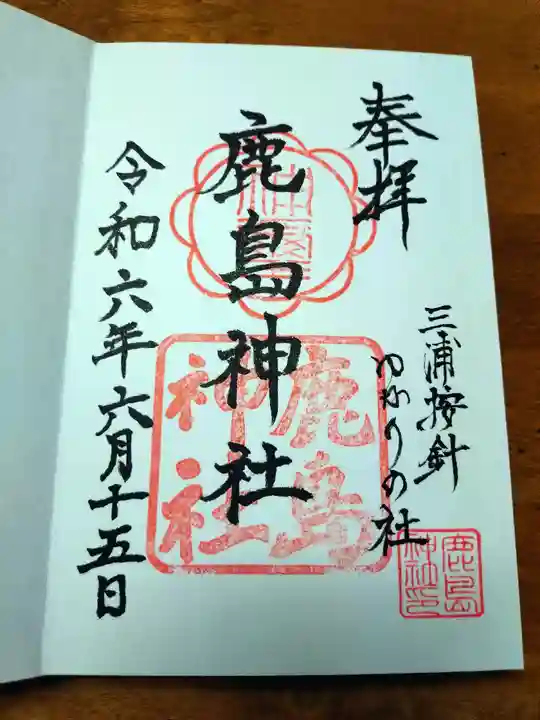 奉拝
三浦按針
ゆかりの社
鹿島神社
鹿島
神社
鹿島
神社印
令和六年六月十五日